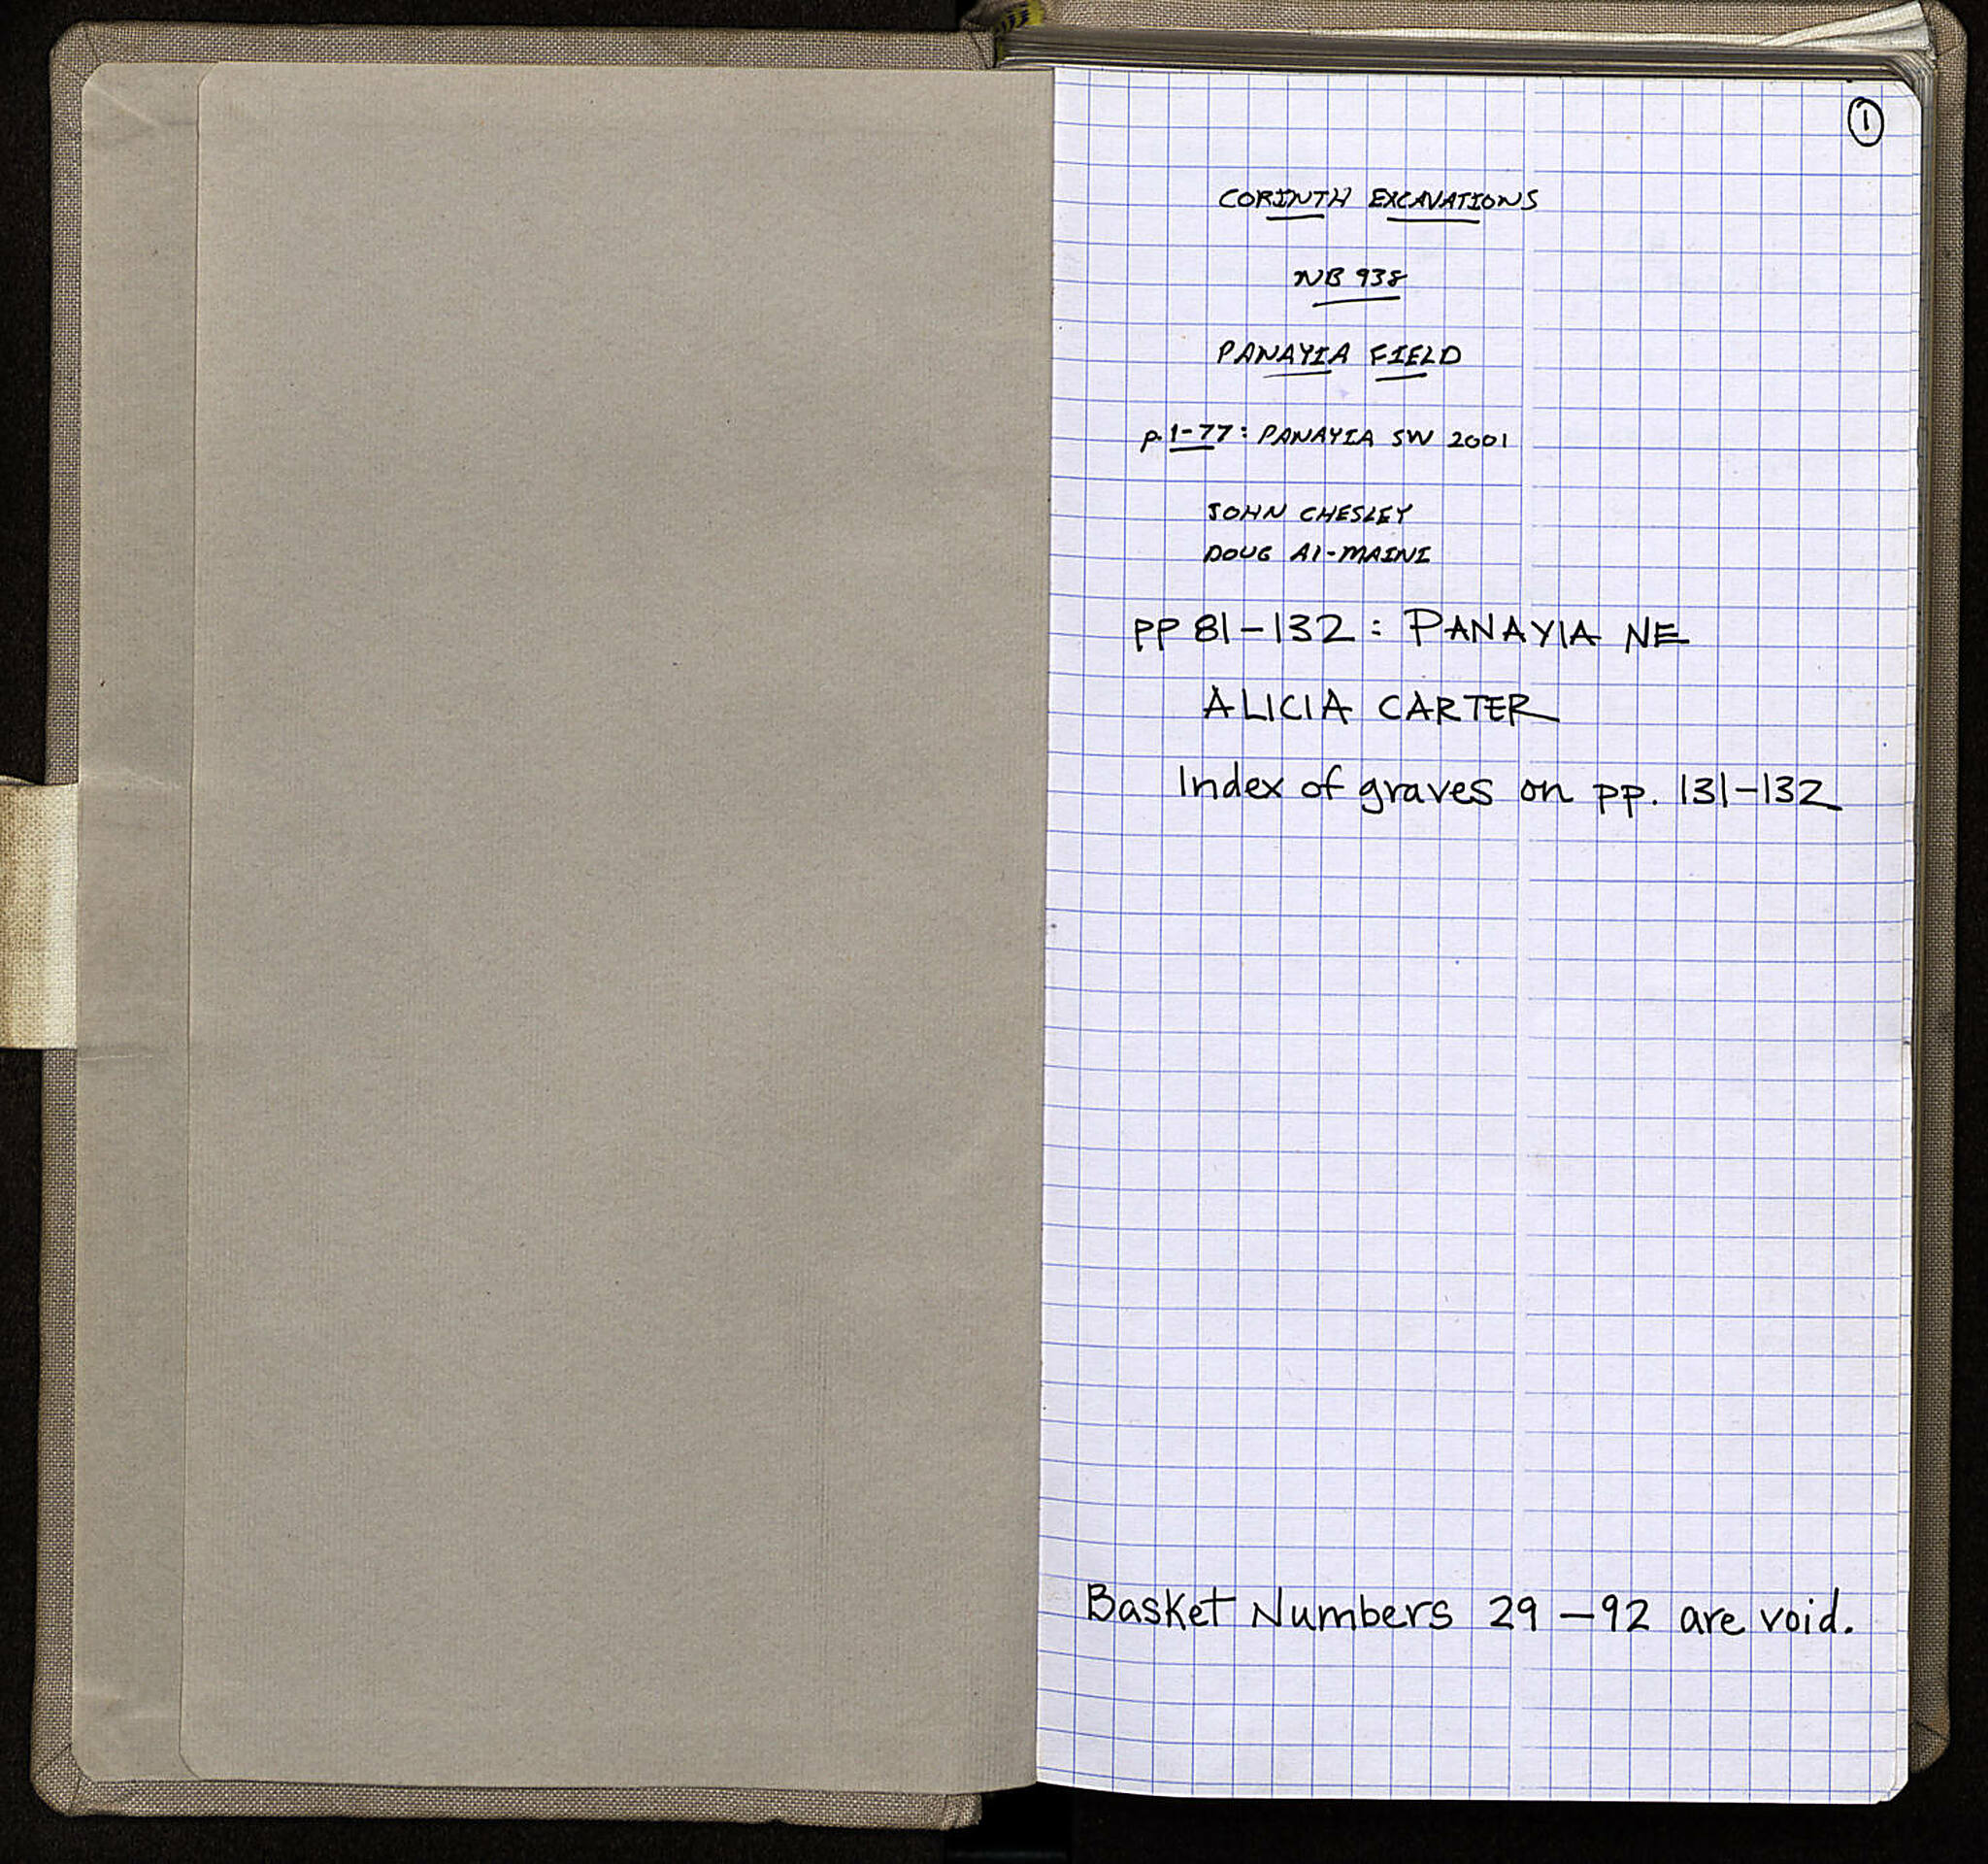 1
CORINTH EXCAVATIONS
NB 938
PANAYIA FIELD
p. 1-77: PANAYIA SW 2001
JOHN CHESLEY
DOUG Al-MAINI
PP 81-132: PANAYIA NE
ALICIA CARTER
Index of graves on pp. 131-132
Basket Numbers 29-92 are void.